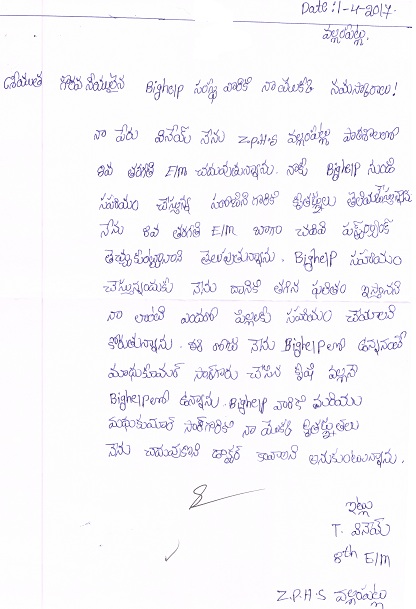 Date: 1-4-2017.
వల్లంపట్ల.
గౌరవనీయులైన Bighelp సంస్థ వారికి నా యొక్క నమస్కారాలు!
నా పేరు వినయ్ నేను Z.P.H.S వల్లంపట్ల పాఠశాలలో
8వ తరగతి E/M చదువుతున్నాను. నాకు Bighelp నుండి
సహాయం చేస్తున్న గారికి కృతజ్ఞతలు
నేను 8వ తరగతి E/M బాగా చదివి
తెచ్చుకుంటానని తెలుపుతున్నాను. Bighelp సహాయం
చేస్తున్నందుకు నేను దానికి తగిన ఫలితం ఇస్తానని
నా లాంటి ఎందరో పిల్లలకు సహాయం చేయాలని
కోరుతున్నాను. ఈ రోజు నేను Bighelpలో ఉన్నానంటే
మధుకుమార్ సార్‌గారు చేసిన కృషి వల్లనే
Bighelpలో ఉన్నాను. Bighelp వారికి మరియు
మధుకుమార్ సార్‌గారికి నా యొక్క కృతజ్ఞతలు
నేను చదువుకొని డాక్టర్ కావాలని అనుకుంటున్నాను.
ఇట్లు
T. వినయ్
8th E/M
Z.P.H.S వల్లంపట్ల